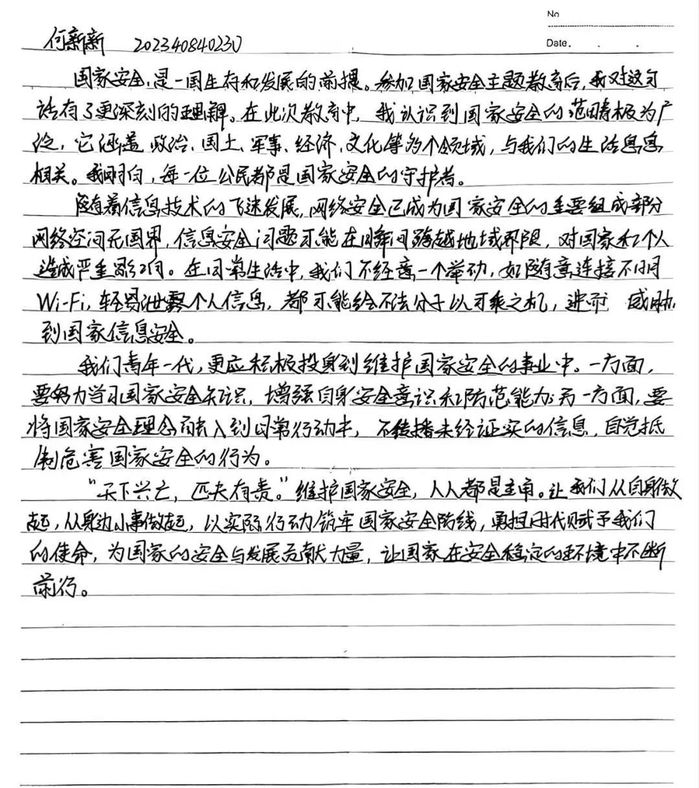 No
Date.
何新新 202340840230
国家安全,是一国生存和发展的前提。参加国家安全主题教育后,我对这句
话有了更深刻的理解。在此次教育中,我认识到国家安全的范畴极为广
泛,它涵盖政治、国土、军事、经济、文化等多个领域,与我们的生活息息
相关。我明白,每一位公民都是国家安全的守护者。
随着信息技术的飞速发展,网络安全已成为国家安全的重要组成部分
网络空间无国界,信息安全问题可能在瞬间跨越地域界限,对国家和个人
造成严重影响。在日常生活中,我们不经意一个举动,如随意连接不明
Wi-Fi,轻易泄露个人信息,都可能给不法分子以可乘之机,进而威胁
到国家信息安全。
我们青年一代,更应积极投身到维护国家安全的事业中。一方面,
要努力学习国家安全知识,增强自身安全意识和防范能力;另一方面,要
将国家安全理念融入到日常行动中,不传播未经证实的信息,自觉抵
制危害国家安全的行为。
“天下兴亡,匹夫有责。”维护国家安全,人人都是主角。让我们从自身做
起,从身边小事做起,以实际行动筑牢国家安全防线,勇担时代赋予我们
的使命,为国家的安全与发展贡献力量,让国家在安全稳定的环境中不断
前行。